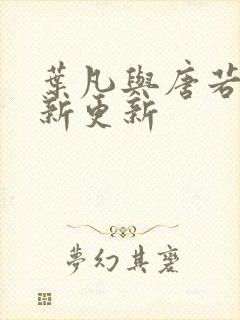 葉凡與唐若
新更新
夢幻其麼